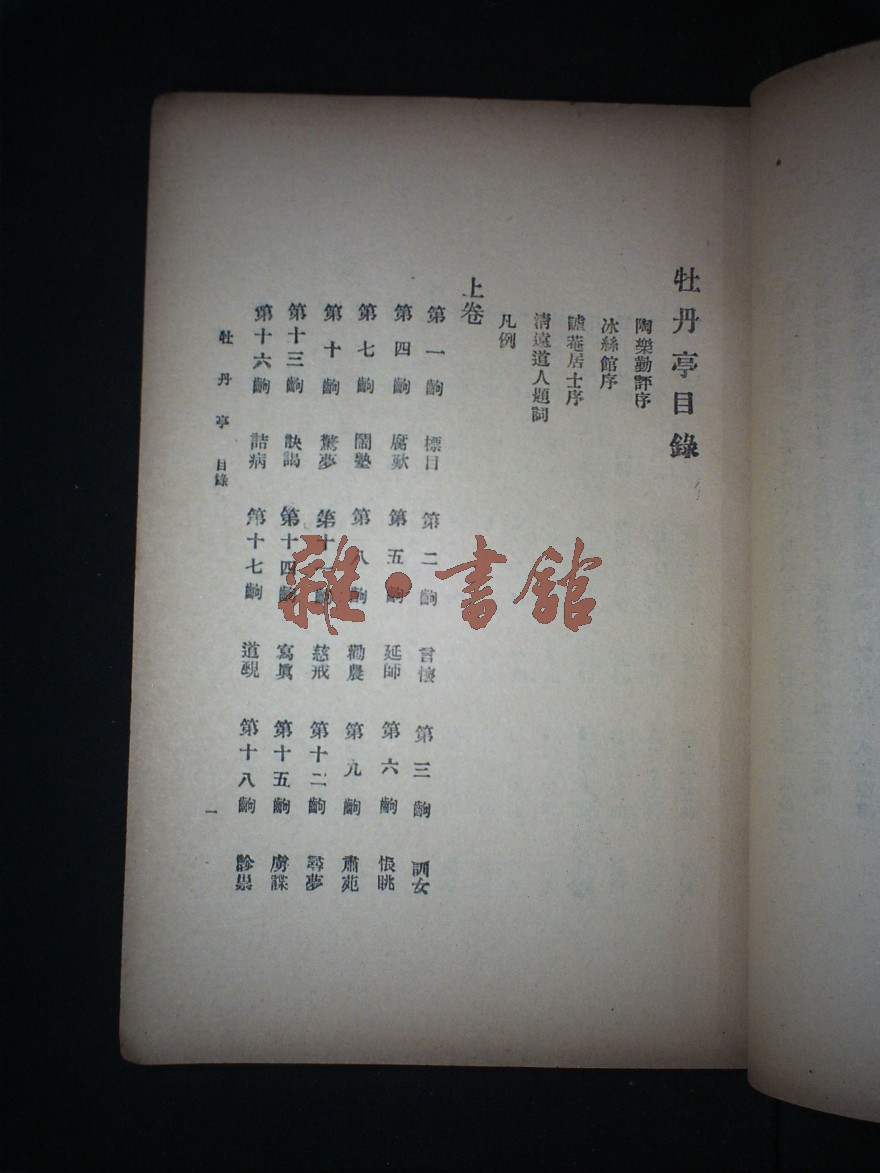 牡丹亭目錄
陶樂勤評序
冰絲館序
菴居士序
淸遠道人題詞
凡例
上卷
第一齣 標目 第二齣 言懷 第三齣 訓女
第四齣 腐歎 第五齣 延師 第六齣 悵眺
第七齣 閨塾 第八齣 勸農 第九齣 肅苑
第十齣 驚夢 第十一齣 慈戒 第十二齣 尋夢
第十三齣 訣謁 第十四齣 寫眞 第十五齣 虜諜
第十六齣 詰病 第十七齣 道覡 第十八齣 診祟
牡丹亭 目錄
一
雜·書館